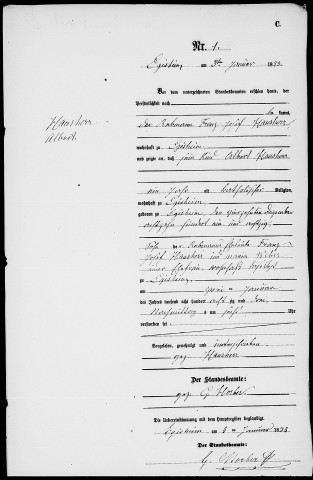 C.
Nr. 1.
Egisheim, am 3ten Januar 1893.
Vor dem unterzeichneten Standesbeamten erschien heute, der
Persönlichkeit nach
kannt,
der Rebmann Franz Josef Hausherr
Hausherr
Albert.
wohnhaft zu Egisheim
und zeigte an, daß sein Kind Albert Hausherr
ein Jahr alt, katholischer Religion,
wohnhaft zu Egisheim
geboren zu Egisheim, den vierzehnten Dezember
achtzehn hundert ein und neunzig,
Sohn des Rebmanns Franz
Josef Hausherr und Maria
wohnhaft
zu Egisheim,
am zwei ten Januar
des Jahres tausend acht hundert neunzig und drei
Nachmittags um fünf Uhr
verstorben sei
Vorgelesen, genehmigt und unterschrieben
gez. Hausherr
Der Standesbeamte:
gez. G. Horber.
Die Uebereinstimmung mit dem Hauptregister beglaubigt.
Egisheim am Januar 1893
Der Standesbeamte:
G. Horber